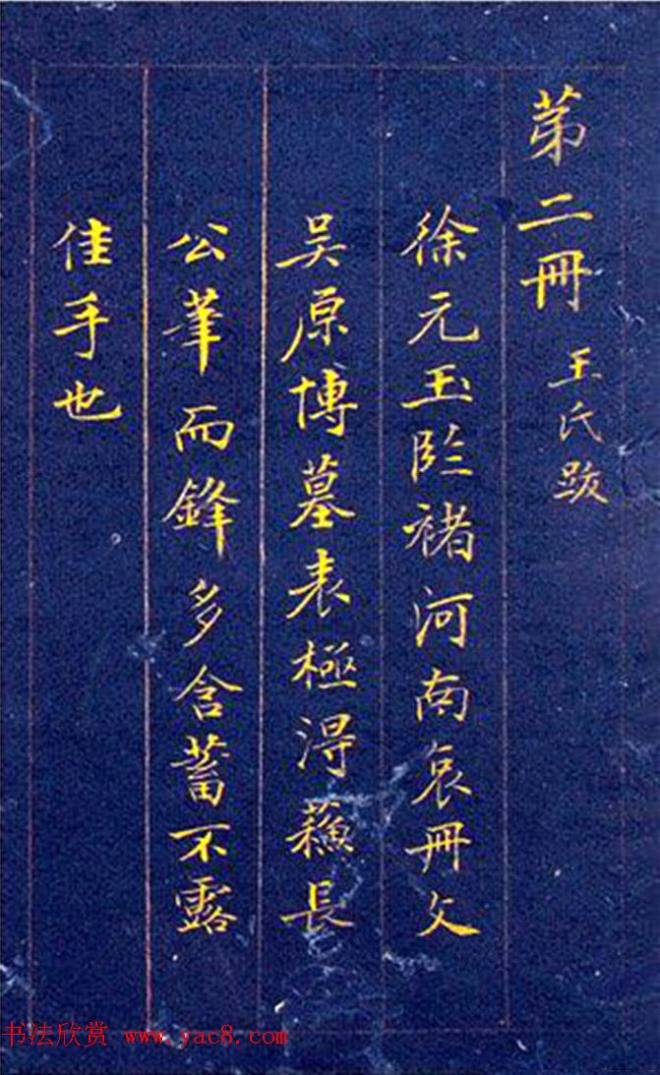 第二冊 王氏跋
徐元玉臨褚河南哀冊文
吴原博墓表極得蘓長
公筆而鋒多含蓄不露
佳手也
书法欣赏 www.yac8.com